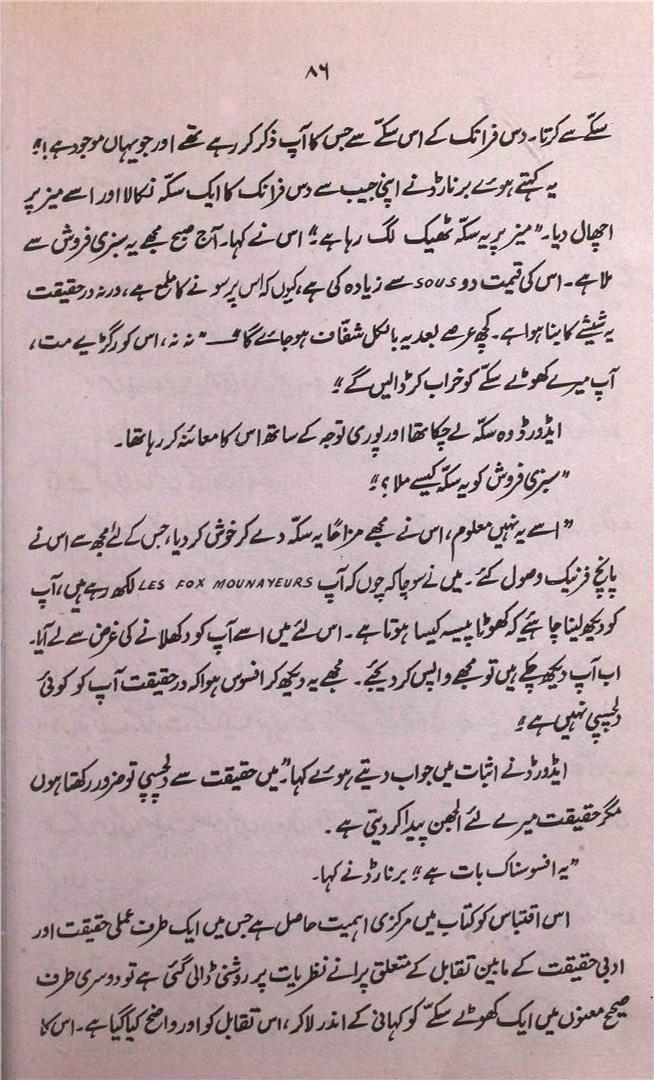 ۸۶
سکّے سے کرتا۔ دس فرانک کے اس سکّے سے جس کا آپ ذکر کر رہے تھے اور جو یہاں موجود ہے!"
یہ کہتے ہوئے برنارڈ نے اپنی جیب سے دس فرانک کا ایک سکّہ نکالا اور اسے میز پر
اچھال دیا۔ "میز پر یہ سکّہ ٹھیک لگ رہا ہے" اس نے کہا۔ آج صبح مجھے یہ سبزی فروش سے
ملا ہے۔ اس کی قیمت دو sous سے زیادہ کی ہے، کیوں کہ اس پر سونے کا ملمع ہے، ورنہ درحقیقت
یہ شیشے کا بنا ہوا ہے۔ کچھ عرصے بعد یہ بالکل شفّاف ہو جائے گا" — "نہ نہ، اس کو رگڑیے مت،
آپ میرے کھوٹے سکّے کو خراب کر ڈالیں گے"
ایڈورڈ وہ سکّہ لے چکا تھا اور پوری توجہ کے ساتھ اس کا معائنہ کر رہا تھا۔
"سبزی فروش کو یہ سکّہ کیسے ملا؟"
"اسے یہ نہیں معلوم، اس نے مجھے مزاحاً یہ سکّہ دے کر خوش کر دیا، جس کے لئے مجھ سے اس نے
پانچ فرنیک وصول کئے۔ میں نے سوچا کہ چوں کہ آپ LES FOX MOUNAYEURS لکھ رہے ہیں، آپ
کو دیکھ لینا چاہئیے کہ کھوٹا پیسہ کیسا ہوتا ہے۔ اس لئے میں اسے آپ کو دکھلانے کی غرض سے لے آیا۔
اب آپ دیکھ چکے ہیں تو مجھے واپس کر دیجئے۔ مجھے یہ دیکھ کر افسوس ہوا کہ درحقیقت آپ کو کوئی
دلچسپی نہیں ہے"
ایڈورڈ نے اثبات میں جواب دیتے ہوئے کہا۔ "میں حقیقت سے دلچسپی تو ضرور رکھتا ہوں
مگر حقیقت میرے لئے الجھن پیدا کر دیتی ہے۔
"یہ افسوسناک بات ہے" برنارڈ نے کہا۔
اس اقتباس کو کتاب میں مرکزی اہمیت حاصل ہے جس میں ایک طرف عملی حقیقت اور
ادبی حقیقت کے مابین تقابل کے متعلق پرانے نظریات پر روشنی ڈالی گئی ہے تو دوسری طرف
صحیح معنوں میں ایک کھوٹے سکّے کو کہانی کے اندر لا کر، اس تقابل کو اور واضح کیا گیا ہے۔ اس کا